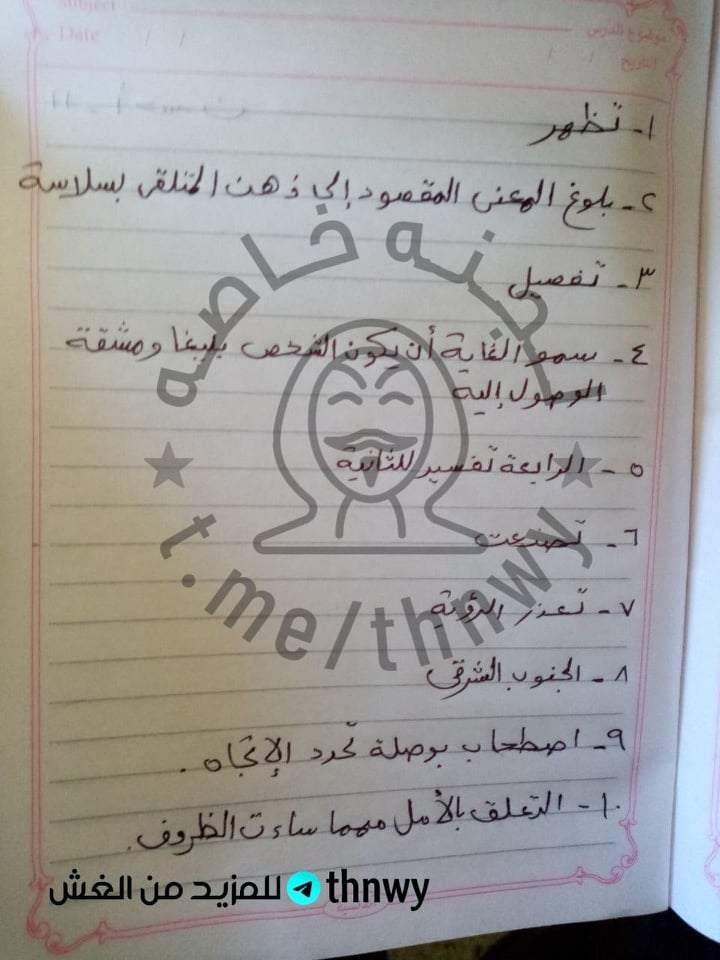 Subject
موضوع الدرس
Date / /
التاريخ / /
١- تظهر
٢- بلوغ المعنى المقصود إلى ذهن المتلقى بسلاسة
٣- تفصيل
٤- سمو الغاية أن يكون الشخص بليغا ومشقة
الوصول إليه
٥- الرابعة تفسير للثانية
٦- تصدعت
٧- تعذر الرؤية
٨- الجنوب الشرقى
٩- اصطحاب بوصلة تحدد الإتجاه .
١٠- التعلق بالأمل مهما ساءت الظروف .
لجنه خاصه
t.me/thnwy
للمزيد من الغش thnwy